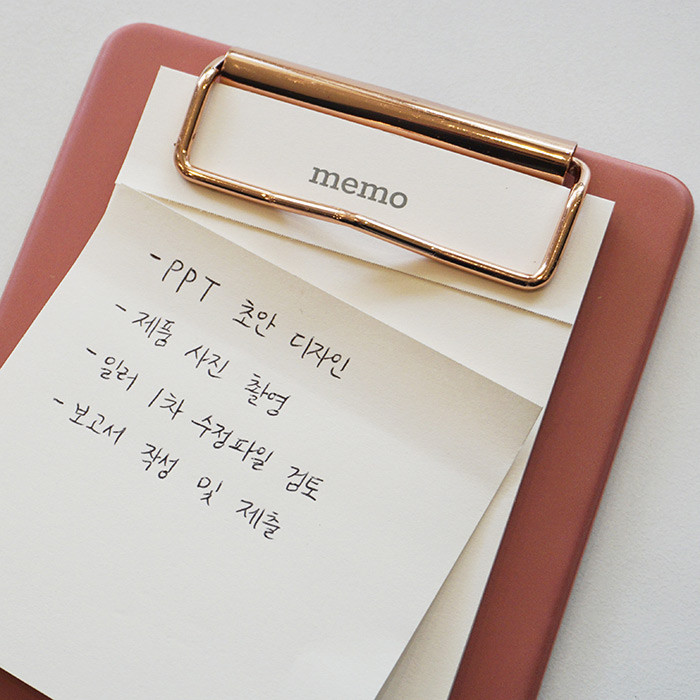 memo
-PPT 초안 디자인
-제품 사진 촬영
-일러 1차 수정파일 검토
-보고서 작성 및 제출